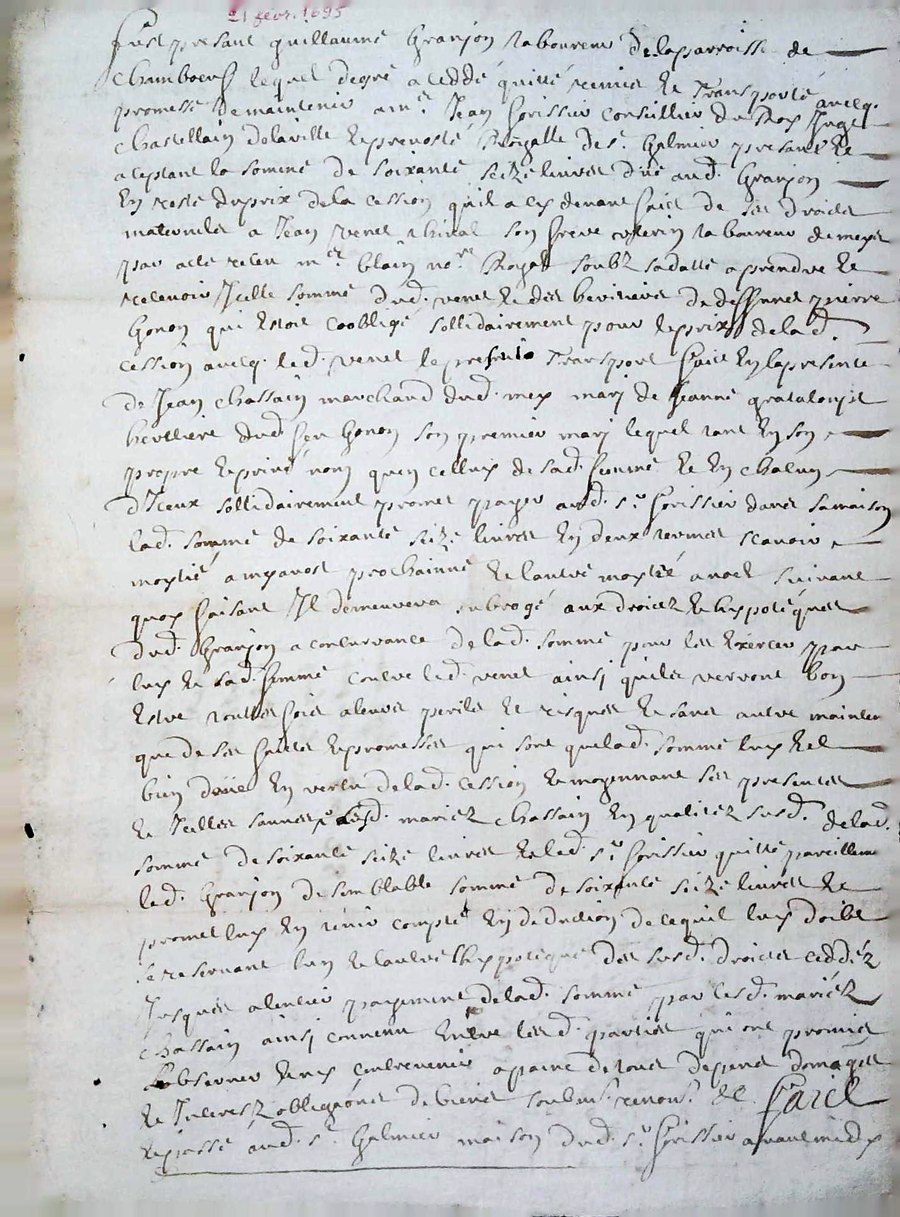 21 fevr. 1695
Fust presant guillaume Granjon laboureur de la parroisse de
Chambœuf lequel de gré a ceddé quitté remis et transporté avecq.
promesse de maintenir a me Jean Corissier conseillier du Roy Juge
Chastellain de la ville et prevosté Royalle de st. Galmier presant et
aceptant la somme de soixante seize livres düe aud. Granjon
En reste du prix de la cession qu'il a cy devant faict de ses droicts
maternels a Jean Venet son frere uterin laboureur de meys
par acte receu me blain nore. Royal soubz sa datte a prendre et
recevoir Icelle somme dud. venet et des heritiers de deffunct pierre
Gonon qui estoit coobligé sollidairement pour le prix de lad.
cession avecq. led. venet le presant transport faict En la presence
de Jean Chassain marchand dud. mey mary de Jeanne grataloup
heritiere dud. feu Gonon son premier mary lequel tant En son
propre et privé nom qu'en celluy de sad. femme et En chacun
d'Iceux sollidairement promet payer aud. sr. Corissier dans sa maison
lad. somme de soixante seize livres En deux termes scavoir
moytié a my aost prochainne et l'autre moytié a noel suivant
quoy faisant Il demeurera subrogé aux droictz et hyppoteques
dud. Granjon a concurrance de lad. somme pour les Exercer par
luy et sad. femme contre led. venet ainsy qu'ils verront bon
Estre touttes fois a leurs perils et risques et sans autre mainten
que de ses faicts et promesses qui sont que lad. somme luy est
bien düe En vertu de lad. cession et moyennant ses presentes
et Icelles sauves lesd. mariez Chassain En qualitez susd. de lad.
somme de soixante seize livres et led. sr. Corissier quitte pareillem
led. Granjon de semblable somme de soixante seize livres et
promet luy En tenir compte En deduction de ce qu'il luy doibt
se reservant l'un et l'autre l'hyppoteque des susd. droicts ceddéz
Jusques a l'entier payement de lad. somme par lesd. mariéz
Chassain ainsy convenu Entre lesd. parties qui ont promis
l'observer et n'y contrevenir a paine de tous depens domages
et Interestz obligeans de biens soubms. renons. &c. Faict
et passé aud. st. Galmier maison dud. sr. Corissier avant midy